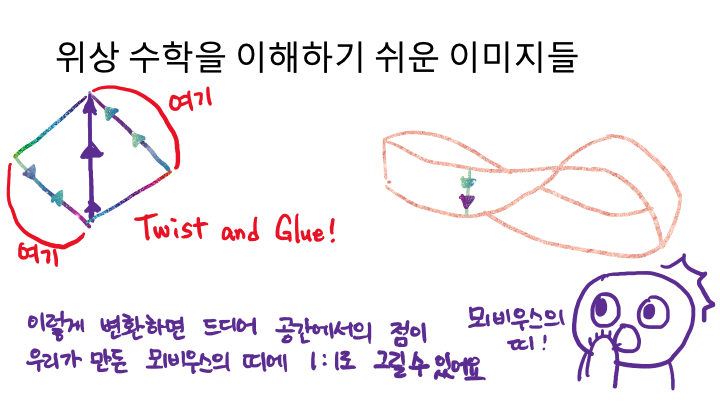 위상 수학을 이해하기 쉬운 이미지들
여기
여기
Twist and Glue!
이렇게 변환하면 드디어 공간에서의 점이
우리가 만든 뫼비우스의 띠에 1:1로 그릴 수 있어요
뫼비우스의
띠!